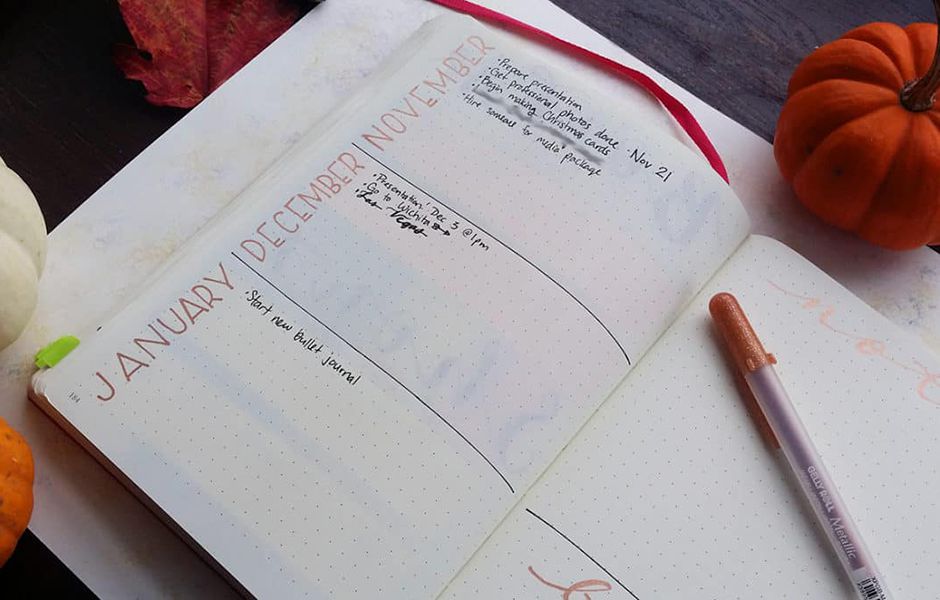 NOVEMBER
• Prepare presentation
• Get professional photos done Nov 21
• Begin making Christmas cards
• Hire someone for media package
DECEMBER
• Presentation! Dec 5 @ 1pm
• Go to Wichita
• Las Vegas
JANUARY
• Start new bullet journal
184
GELLY ROLL Metallic